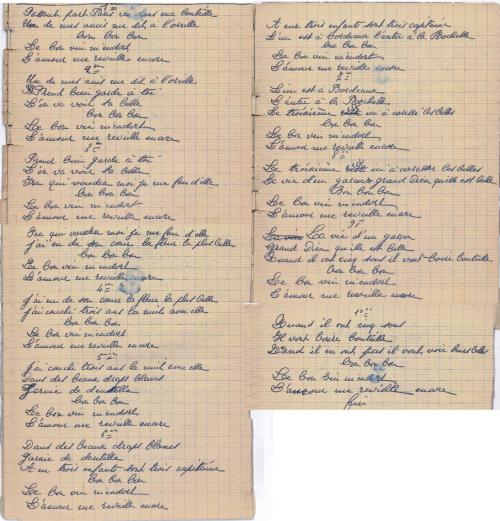 Passant par Paris vu dans ma bouteille
Un de mes amis me dit à l'oreille
Bon Bon Bon
Le bon vin m'endort
L'amour me reveille encore
2e
Un de mes amis me dit à l'oreille
Prend bien garde à toi
L'on va voir ta belle
Bon Bon Bon
Le Bon vin m'endort
L'amour me reveille encore
3e
Prend bien garde à toi
L'on va voir ta Belle
Ira qui voudra moi je me fou d'elle
Bon Bon Bon
Le Bon vin m'endort
L'amour me reveille encore
Ire qui voudra moi je me fou d'elle
j'ai eu de son cœur la fleur la plus belle
Bon Bon Bon
Le Bon vin m'endort
L'amour me reveille encore
4e
J'ai eu de son cœur la fleur la plus belle
J'ai couché trois ans la nuit avec elle
Bon Bon Bon
Le Bon vin m'endort
L'amour me reveille encore
5e
j'ai couché trois ans la nuit avec elle
Dans des beaux draps blancs
Garnie de dentelle
Bon Bon Bon
Le bon vin m'endort
L'amour me reveille encore
6e
Dans des beaux draps blancs
garnie de dentelle
A eu trois enfants sont trois capitaine
Bon Bon Bon
Le Bon vin m'endort
L'amour me reveille encore
A eue trois enfants sont trois capitaine
L'un est à Bordeaux l'autre à la Rochelle
Bon Bon Bon
Le Bon vin m'endort
L'amour me reveille encore
L'un est à Bordeaux
L'autre à la Rochelle
Le troisième va a caresse les belles
Bon Bon Bon
Le bon vin m'endort
L'amour me reveille encore
Le troisième va a caresser les belles
La vie d'un garson grand Dieu qu'elle est belle
Bon Bon Bon
Le Bon vin m'endort
L'amour me reveille encore
9e
La vie d'un garson
Grand Dieu qu'elle est belle
Quand il ont cinq sous il vont boire bouteille
Bon Bon Bon
Le bon vin m'endort
L'amour me reveille encore
10e
Quand il ont cinq sous
Il vont boire bouteille
Quand il en ont pas il vont voir leurs belles
Bon Bon Bon
Le Bon vin m'endort
L'amour me reveille encore
fin